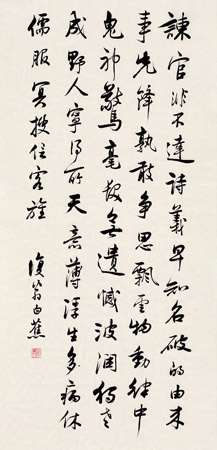 諫官非不達詩義早知名破的由来
事先鋒孰敢争思飄雲物動律中
鬼神驚毫髮無遺憾波瀾獨老
成野人寧得所天意薄浮生多病休
儒服冥搜信客旌
復翁白蕉